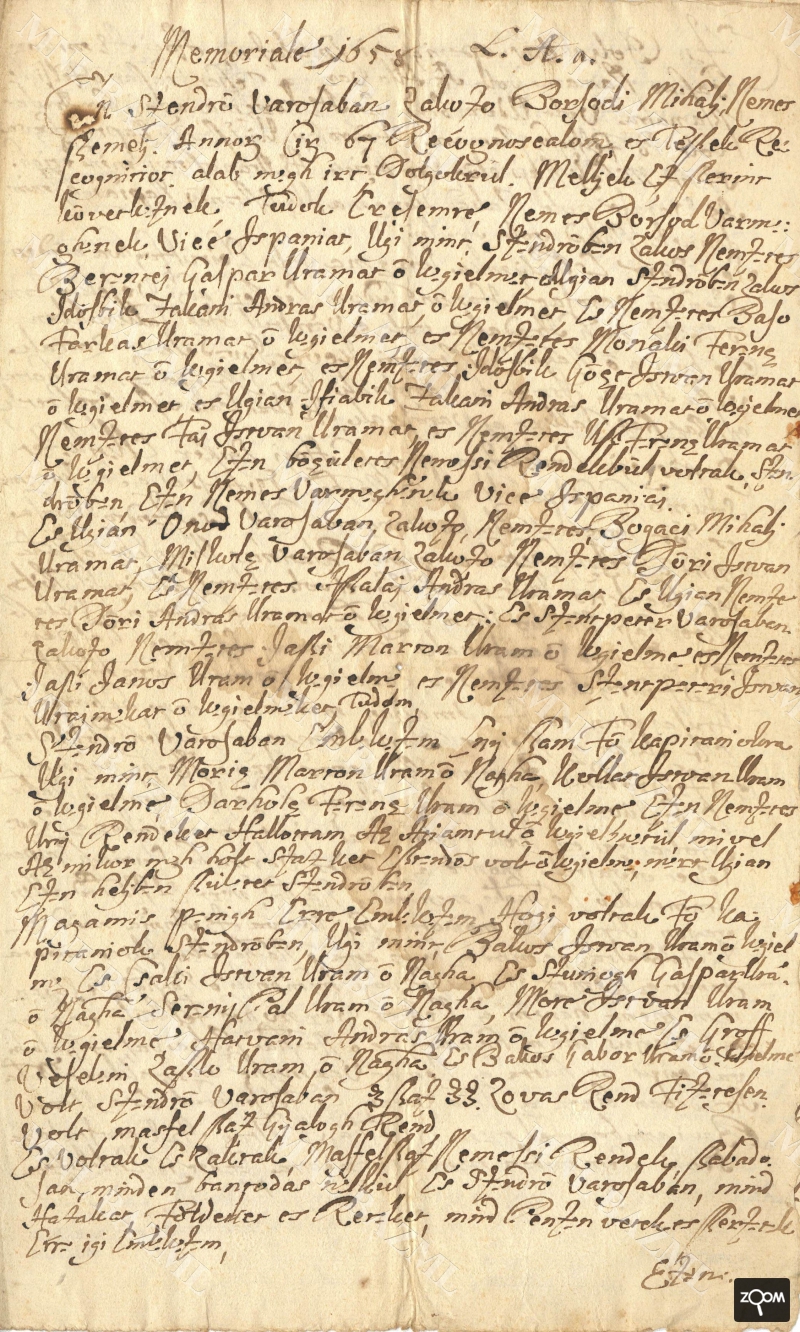 Memoriale 1658 L. A. a.
Én Szendrő Varosaban Lakozo Borsodi Mihalj, Nemes
Szemelj. Annorum Cir. 67 Recognoscalom, es Teszek Re-
cognitiot. alab megh irt Dolgokrúl. Melljek Ez szerint
kövertkeznek. Tudok Eressemre, Nemes Borsod Varme-
ghenek Vice Ispaniat, Ugi mint, Szendröben Lakos Nemzetes
Berentej Gaspar Uramat ö kegielmet, Ugian Szendröben Lakos
Idösbik Fakani Andras Uramat, ö kegielmet, Es Nemzetes Baso
Farkas Uramat ö kegielmet, es Nemzetes Monaki Ferencz
Uramat ö kegielmet, es Nemzetes Idösbik Göcze Istvan Uramat
ö kegielmet, es Ugian Ifiabik Fakani Andras Uramat ö kegielmet
Nemzetes Fai Istvan Uramat, es Nemzetes Ferencz Uramat
ö kegielmet, Ezen böczületes Nemessi Rendekbül voltak, Szen-
dröben, Ezen Nemes Varmeghenek Vice Ispaniai.
Es Ugian Onod Varosaban, Lakozo, Nemzetes Bogaci Mihalj
Uramat, Miskolcz Varosaban Lakozo Nemzetes Döri Istvan
Uramat, Es Nemzetes Aszalaj Andras Uramat, Es Ugian Nemze-
tes Döri Andras Uramat ö kegielmet: Es Szentpeter Varosaban
Lakozo Nemzetes Jaszi Marton Uram ö kegielme es Nemzetes
Jaszi Janos Uram ö kegielme es Nemzetes Szentpeteri Istvan
Uraimekat ö kegielmeket Tudom,
Szendrö Varosaban Emlekezem Enj szam Fö kapitaniokra
Ugi mint, Moricz Marton Uram ö Nagha, Kollar Istvan Uram
ö kegielme, Darholcz Ferencz Uram ö kegielme Ezen Nemzetes
Uraj Rendeket Hallottam Az Apiamtul ö kegielmekrül mivel
Az mikor megh holt Szaz het Esztendös volt ö kegielme, mert Ugian
Ezen heljben születet Szendröben,
Magamis penigh Erre Emlekezem, Hogi voltak Fö ka-
pitaniok Szendröben, Ugi mint, Bakos Istvan Uram ö kegiel-
me, Es Csaki Istvan Uram ö Nagha, Es Gaspar Ura.
ö Nagha Serenij Pal Uram ö Nagha, More Istvan Uram
ö kegielme Hatvani Andras Uram ö kegielme Es Groff
Veselini Laszlo Uram, ö Nagha Es Bakos Gabor Uram ö kegielme
Volt Szendrö Varosaban 3 szaz 33. Lovas Rend Fizetesen.
Volt masfel szaz Gyalogh Rend
Es Voltak Es Laktak, Masfelszaz Nemessi Rendek, szabado-
san, minden bantodás nelkül Es Szendrö Varosaban, mind
Hazakat Földeket es Reteket, mind Penzen vettek es szerzettek
Erre igi Emlekezem,
Ezen.
ZOOM